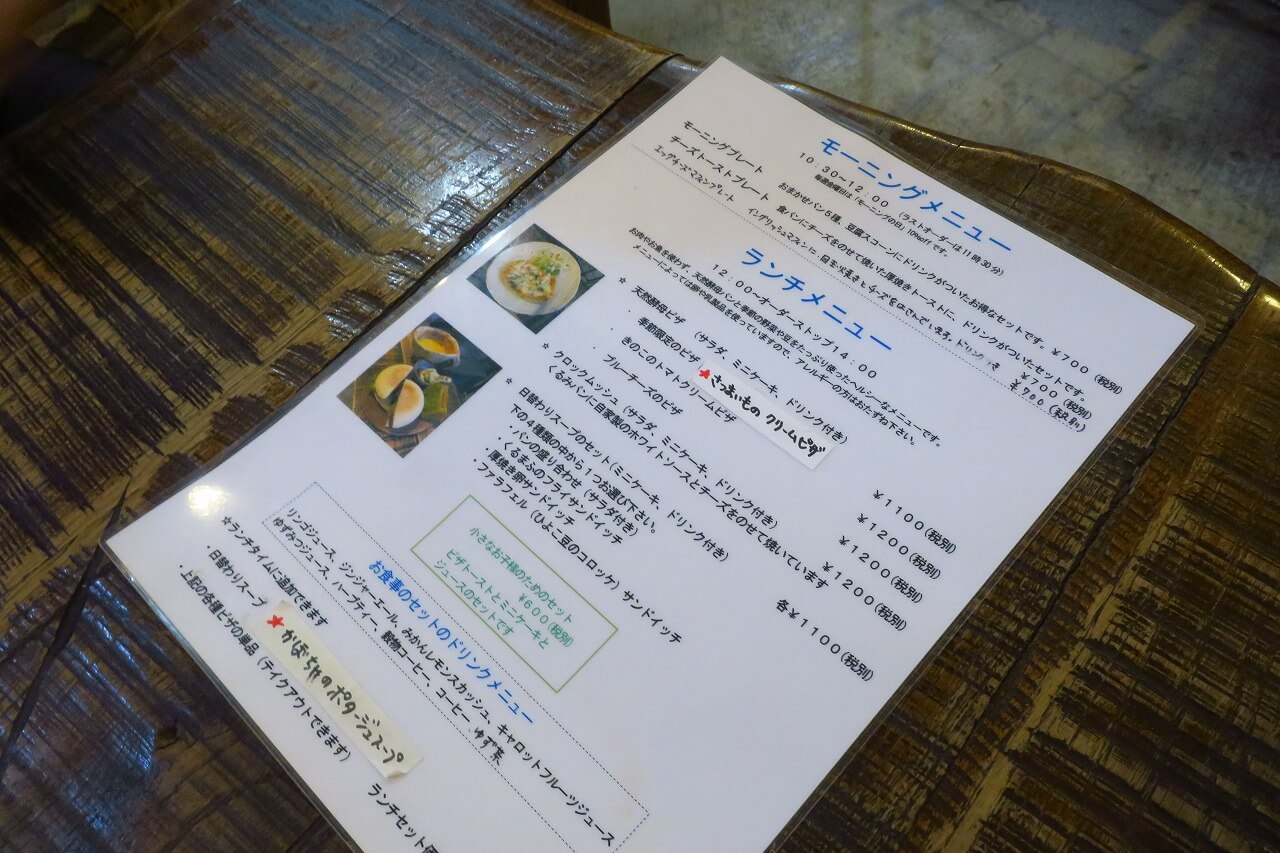 モーニングメニュー
10:30~12:00 (ラストオーダーは11時30分)
毎週金曜日は「モーニングの日」10%offです。
モーニングプレート おまかせパン5種、豆腐スコーンにドリンクがついたお得なセットです。 ¥700(税別)
チーズトーストプレート 食パンにチーズをのせて焼いた厚焼きトーストに、ドリンクがついたセットです。 ¥700(税別)
エッグチーズマフィンプレート イングリッシュマフィンに目玉焼きとチーズをはさんでいます。ドリンク付き ¥700(税別)
ランチメニュー
12:00~オーダーストップ14:00
お肉やお魚を使わず、天然酵母パンと季節の野菜や豆をたっぷり使ったヘルシーなメニューです。
メニューによっては卵や乳製品を使っていますので、アレルギーの方はおたずね下さい。
☆ 天然酵母ピザ (サラダ、ミニケーキ、ドリンク付き)
・ 季節限定のピザ ★さつまいもの クリームピザ ¥1100(税別)
・ きのこのトマトクリームピザ ¥1200(税別)
・ ブルーチーズのピザ ¥1200(税別)
☆ クロックムッシュ (サラダ、ミニケーキ、ドリンク付き) ¥1200(税別)
くるみパンに自家製のホワイトソースとチーズをのせて焼いています
☆ 日替わりスープのセット(ミニケーキ、ドリンク付き) 各¥1100(税別)
下の4種類の中から1つお選び下さい。
・パンの盛り合わせ (サラダ付き)
・くるまふのフライサンドイッチ
・厚焼き卵サンドイッチ
・ファラフェル (ひよこ豆のコロッケ) サンドイッチ
小さなお子様のためのセット
¥600(税別)
ピザトーストとミニケーキと
ジュースのセットです
お食事のセットのドリンクメニュー
リンゴジュース、ジンジャーエール、みかんレモンスカッシュ、キャロットフルーツジュース
ゆずみつジュース、ハーブティー、穀物コーヒー、コーヒー、ゆず茶
☆ランチタイムに追加できます
・日替わりスープ ★かぼちゃのポタージュスープ
・上記の各種ピザの単品 (テイクアウトできます)
ランチセット